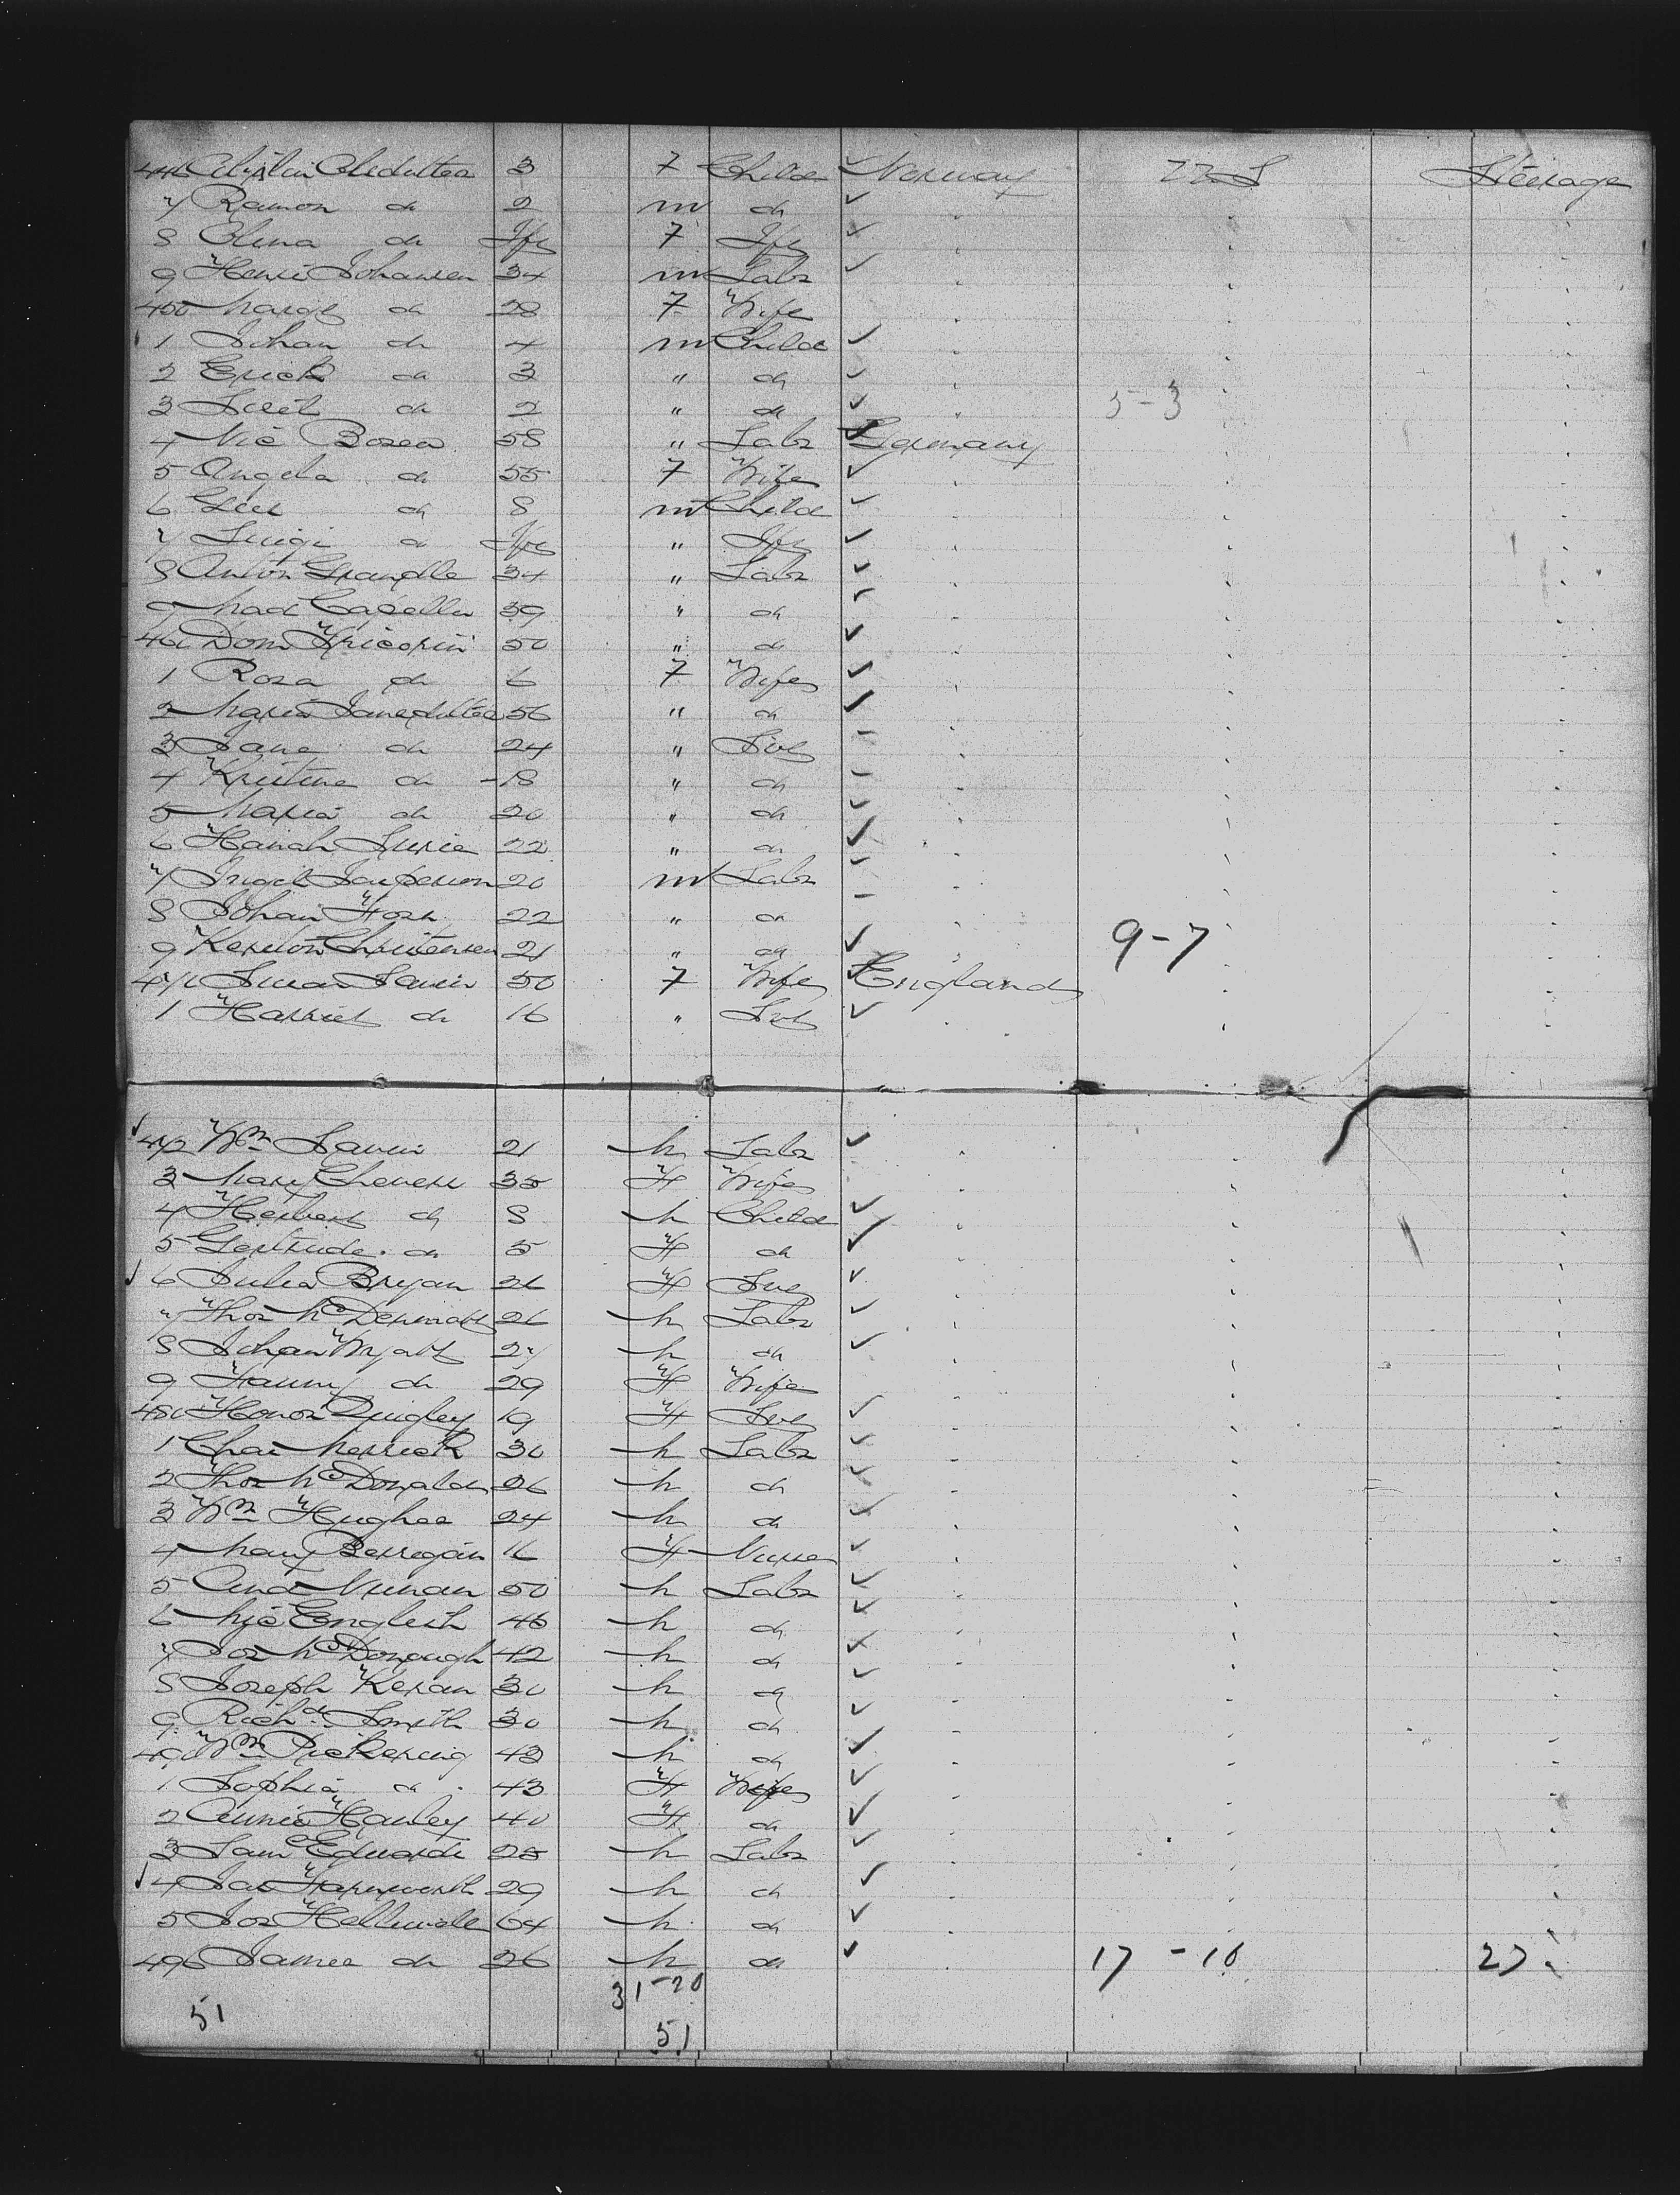 446 3 7 Child Norway U S Steerage
7 Ramon do 2 m do
8 Olina do Inf 7 Inf
9 Henri Johansen 34 m Labr
450 Margt do 28 7 Wife
1 Johan do 4 m Child
2 Erick do 3 " do
3 do 2 " do 5-3
4 Nic Bosen 58 " Labr Germany
5 Angela do 55 7 Wife
6 do 8 m Child
7 Luigi do Inf " Inf
8 Anton Grandle 34 " Labr
9 Mad Capella 39 " do
460 Dom 50 " do
1 Rosa do 6 7 Wife
2 Maria 56 " do
3 Jane do 24 " Svt
4 Kristine do 18 " do
5 Maria do 20 " do
6 Hanah 22 " do
7 20 m Labr
8 Johan 22 " do
9 Christensen 21 " do 9-7
470 50 7 Wife England
1 Harriet do 16 " Svt
472 Wm 21 M Labr
3 Mary 35 F Wife
4 Herbert do 8 M Child
5 Gertrude do 5 F do
6 Julia Bryan 26 F Svt
7 Thos McDermott 26 M Labr
8 Johan Wyatt 27 M do
9 Fanny do 29 F Wife
480 Honor Quigley 19 F Svt
1 Chas Merrick 30 M Labr
2 Thos McDonald 26 M do
3 Wm Hughes 24 M do
4 Mary Berrigan 16 F Nurse
5 And Nunan 50 M Labr
6 Mic English 46 M do
7 Jos McDonough 42 M do
8 Joseph Keran 30 M do
9 Richd Smith 30 M do
490 Wm Pickering 43 M do
1 Sophia do 43 F Wife
2 Annie Hanley 40 F do
3 Sam Edwards 28 M Labr
4 Jas 29 M do
5 Jos Helliwele 64 M do
496 James do 26 M do 17 - 10 27
31-20
51
51